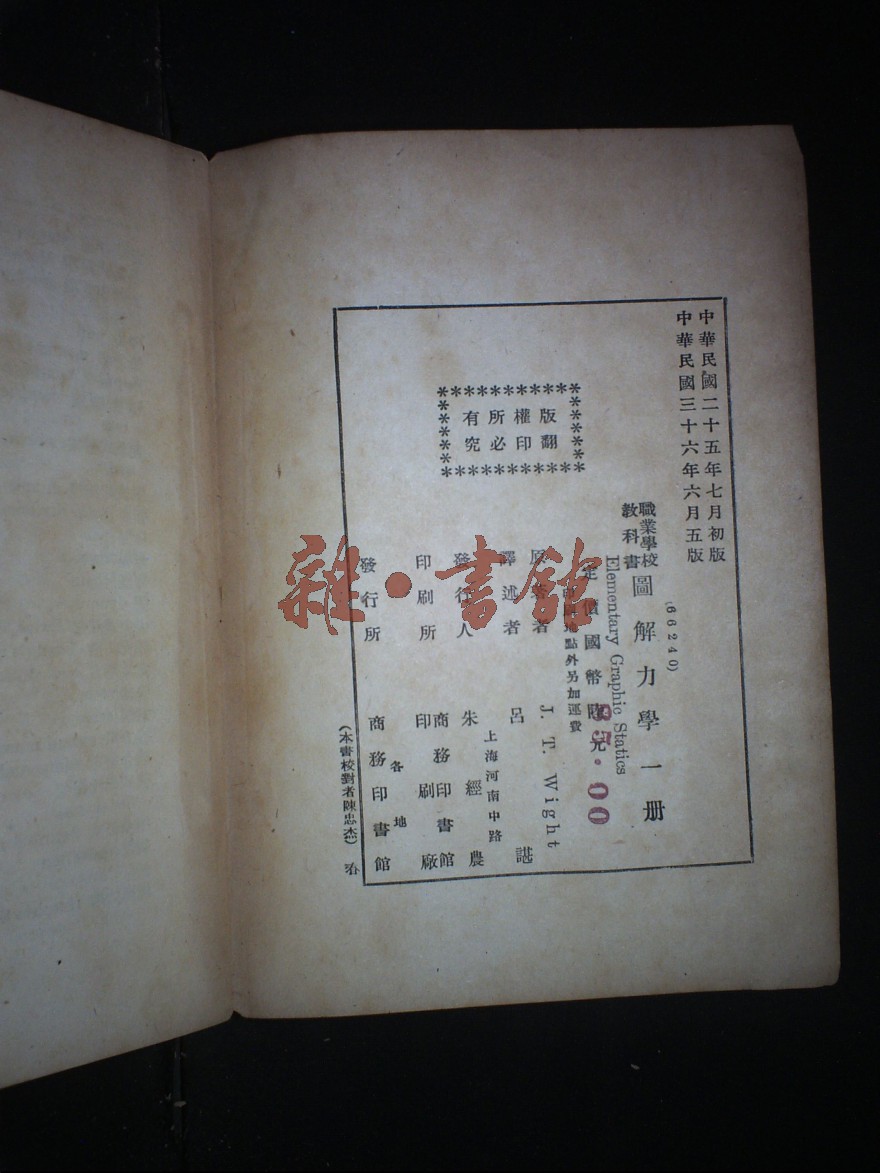 中華民國二十五年七月初版
中華民國三十六年六月五版
(66240)
職業學校
教科書
圖解力學一册
Elementary Graphic Statics
定價國幣陸元
85.00
地點外另加運費
版權所有
翻印必究
原著者
J. T. Wight
譯述者
呂諶
發行人
朱經農
上海河南中路
印刷所
商務印書館
印刷廠
發行所
各地
商務印書館
(本書校對者陳忠杰)
雜·書館